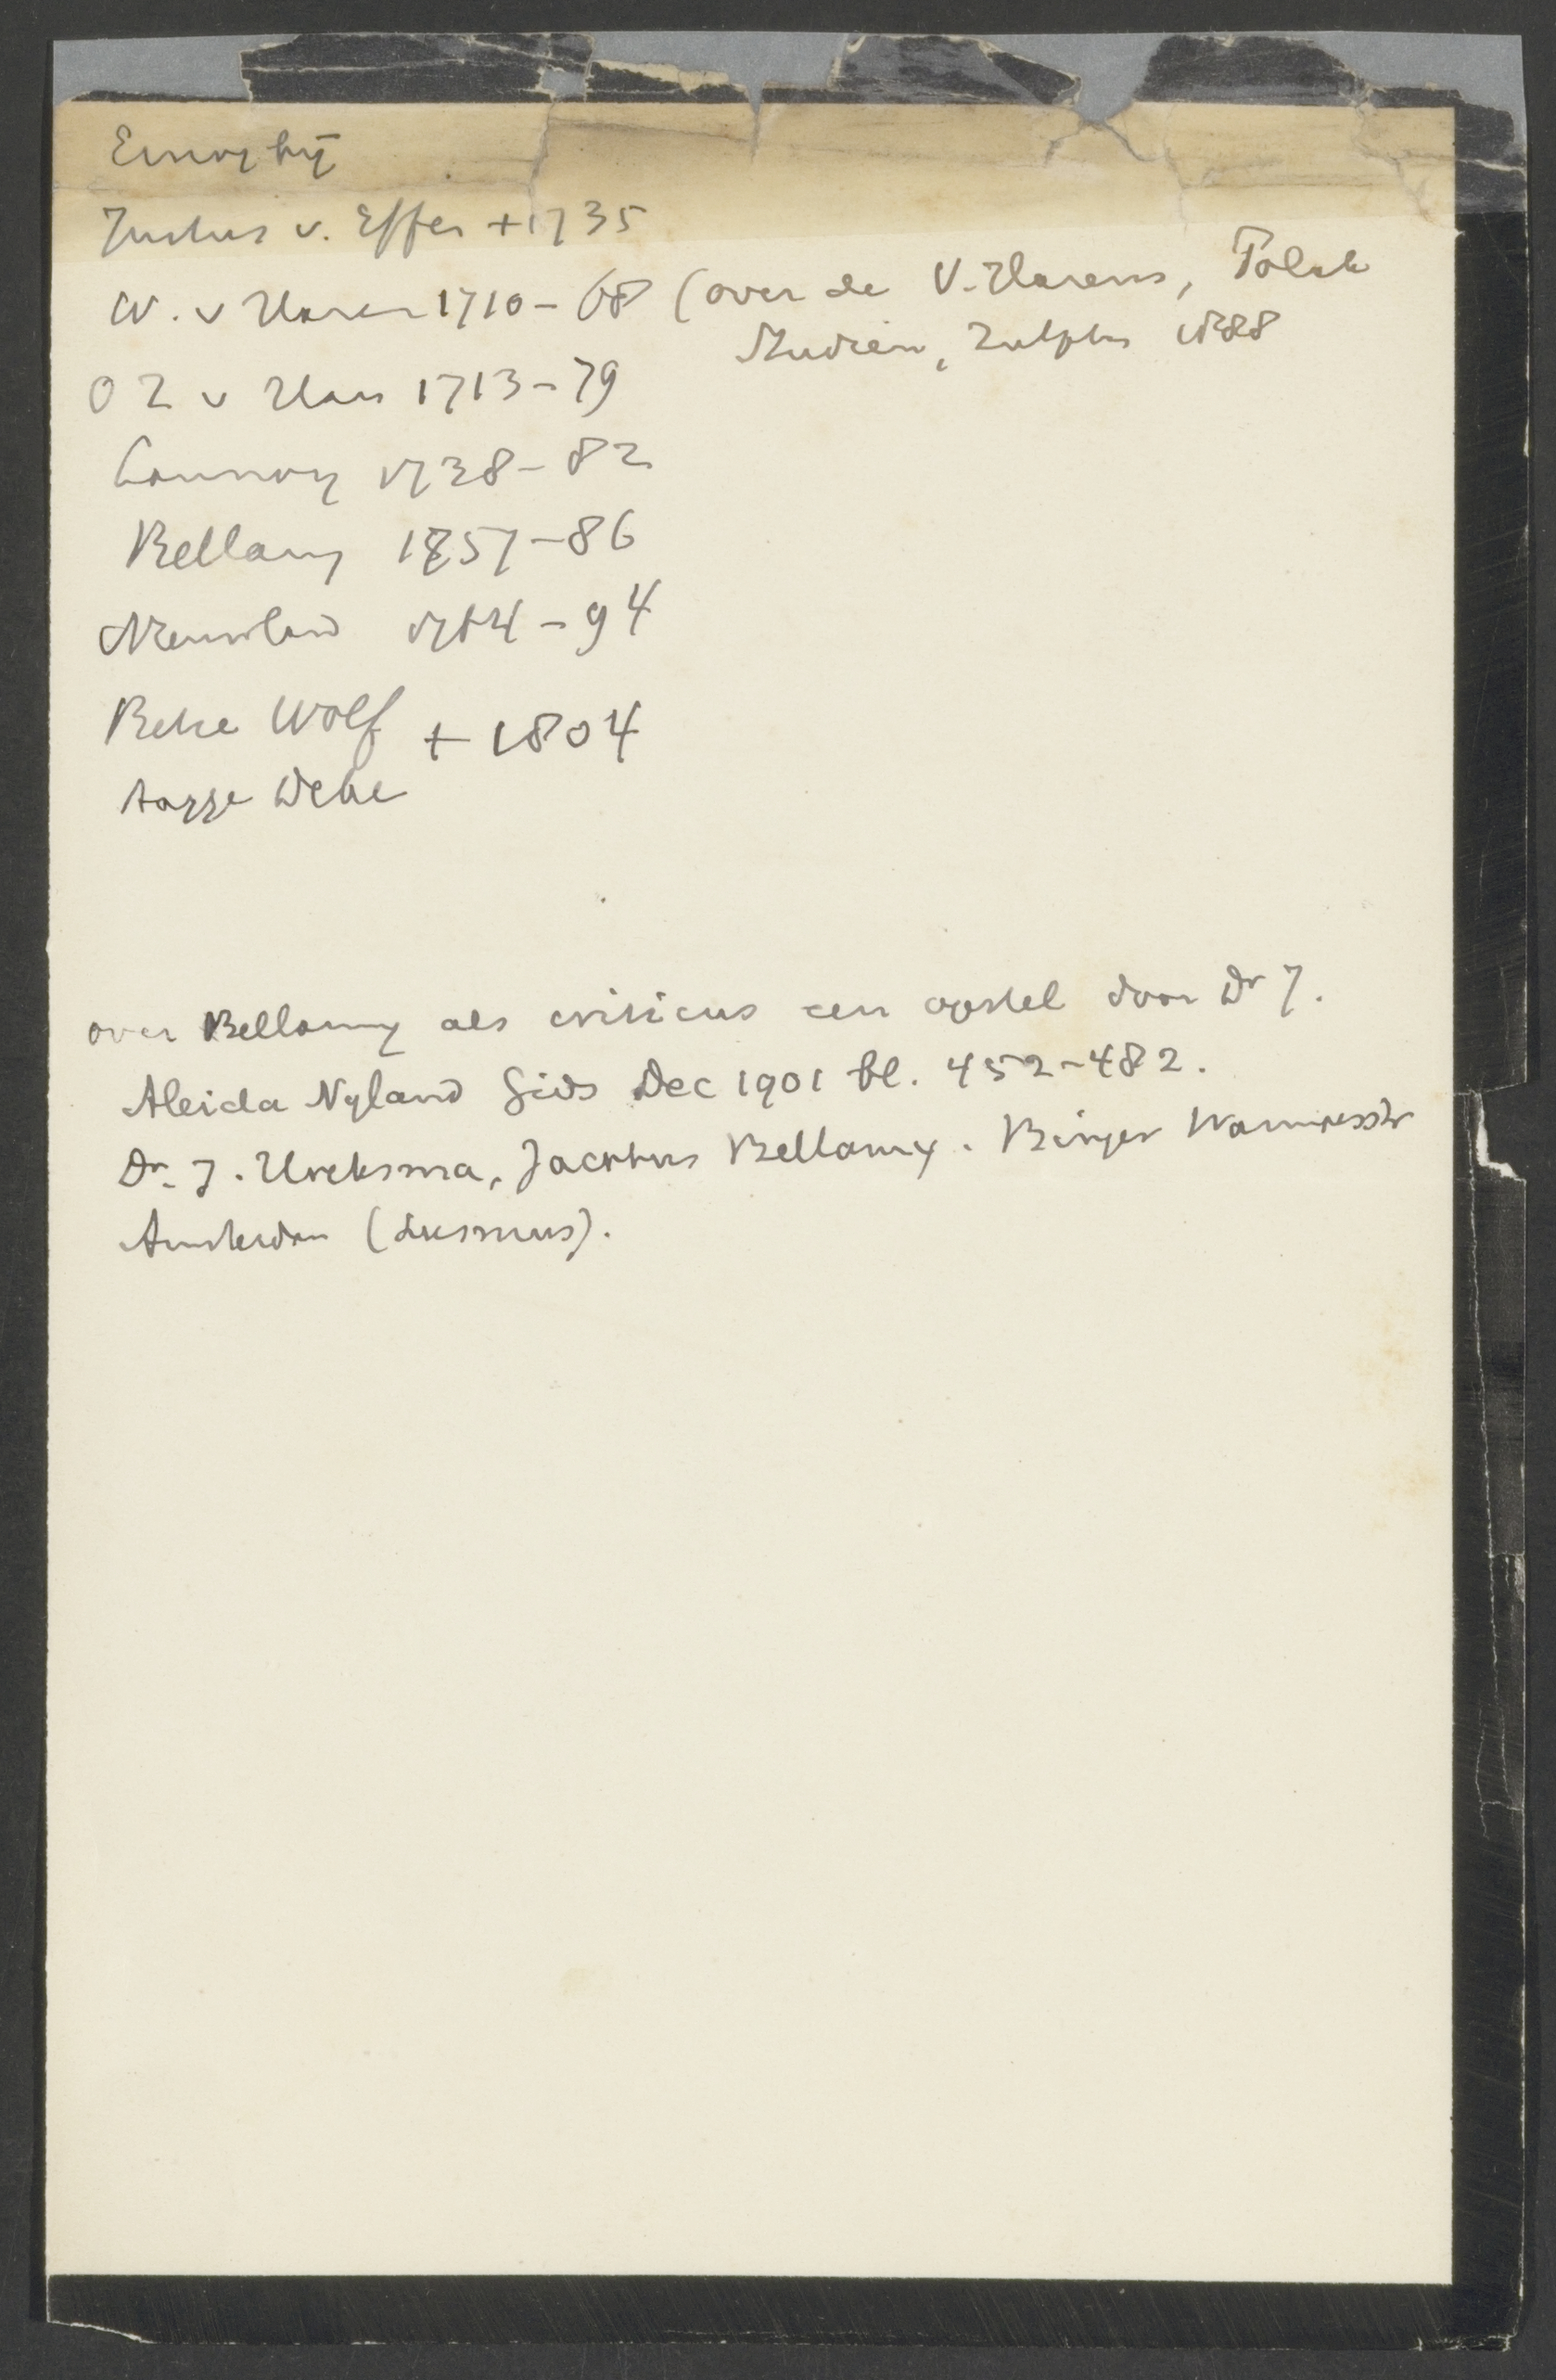 En nog bij
Justus v. Effen +1735
W. v Haren 1710-68 (over de V. Harens, Polak
Studien, Zutphen 1888
O Z v Haren 1713-79
Lannoy 1738-82
Bellamy 1757-86
Nieuwland 1764-94
Betje Wolf + 1804
Aagje Deken
over Bellamy als criticus een opstel door Dr J.
Aleida Nyland Gids Dec 1901 bl. 452-482.
Dr. J. Hoeksma, Jacobus Bellamy.
Amsterdam